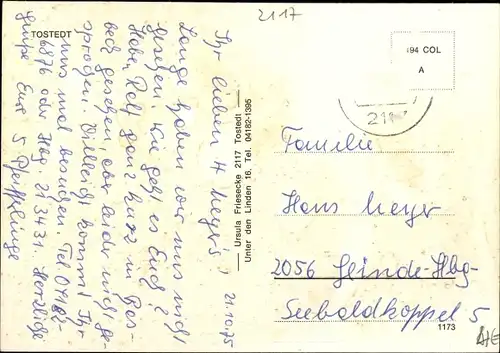 2117
TOSTEDT
194 COL
A
211
21.10.75
Ihr lieben 4 Meyers!
Lange haben wir uns nicht
gesehen. Wie geht es Euch?
Habe Rolf ganz kurz in
gesehen, aber leider nicht ge-
sprochen. Vielleicht kommt Ihr
uns mal besuchen. Tel 04182
6876 oder Hbg. 213431. Herzliche
Grüße Eure 5 Pfeifflinge
Ursula Friesecke 2117 Tostedt
Unter den Linden 16. Tel. 04182-1395
Familie
Hans Meyer
2056 Glinde-Hbg-
Seeboldkoppel 5
1173